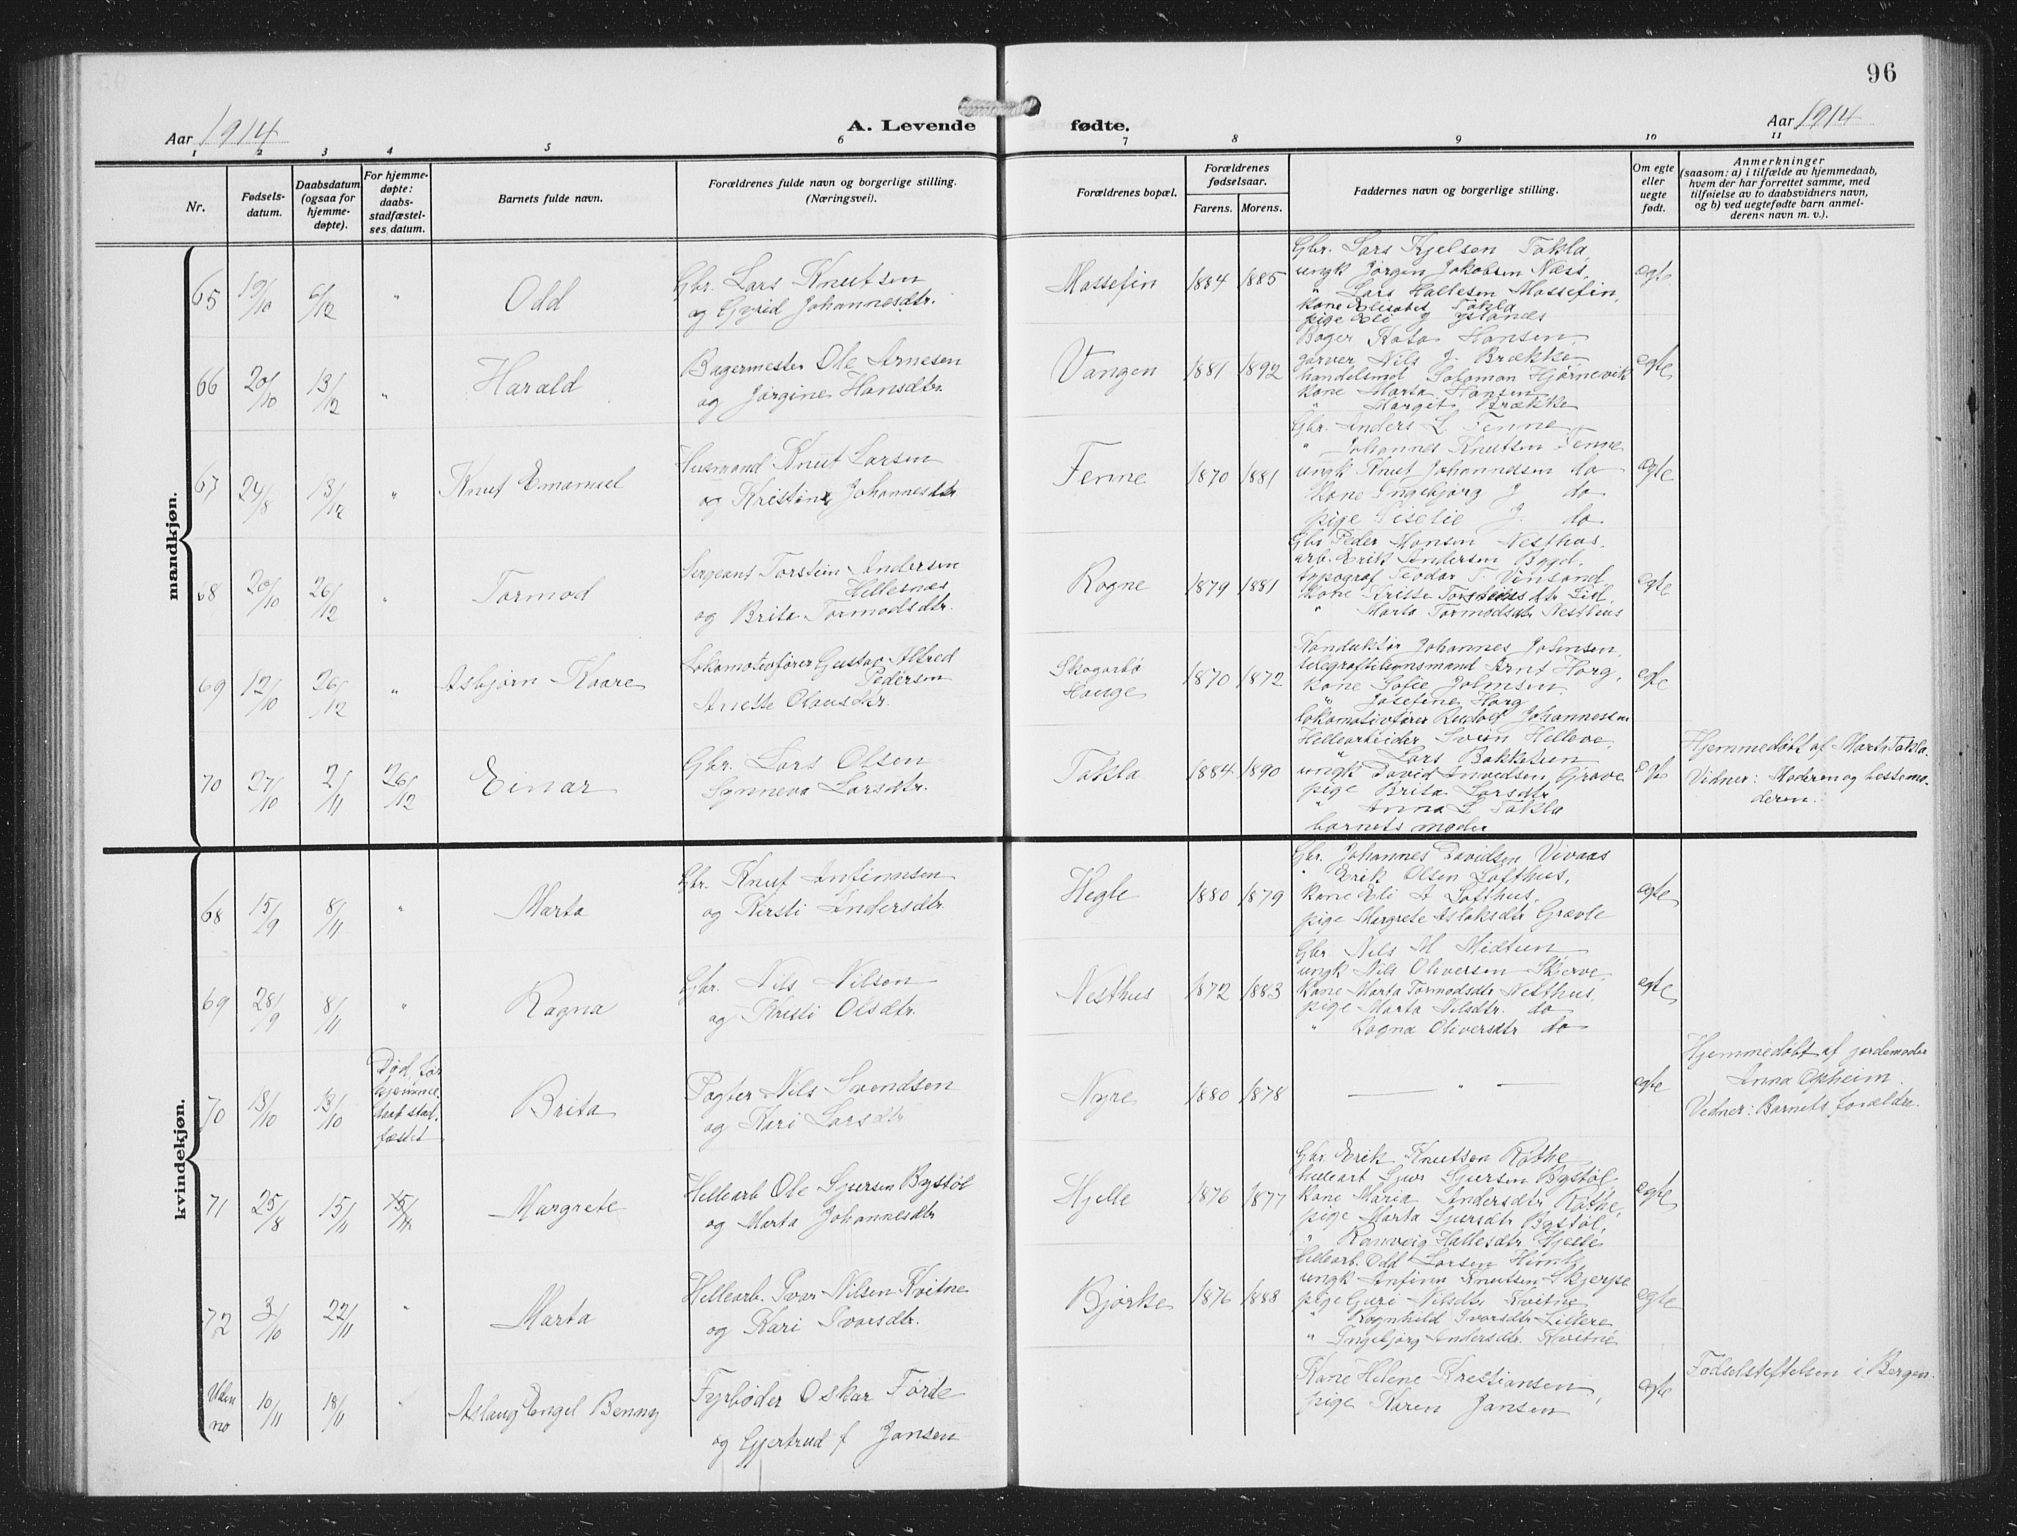 96
Aar 1914
A. Levende fødte.
Aar 1914
1 2 3 4 5 6 7 8 9 10 11
Nr.
Fødsels-
datum.
Daabsdatum
(ogsaa for
hjemme-
døpte).
For hjemme-
døpte:
daabs-
stadfæstel-
ses datum.
Barnets fulde navn.
Forældrenes fulde navn og borgerlige stilling.
(Næringsvei).
Forældrenes bopæl.
Forældrenes
fødselsaar.
Farens. Morens.
Faddernes navn og borgerlige stilling.
Om egte
eller
uegte
født.
Anmerkninger
(saasom: a) i tilfælde av hjemmedaab,
hvem der har forrettet samme, med
tilføielse av to daabsvidners navn,
og b) ved uegtefødte barn anmel-
derens navn m. v.).
mandkjøn.
65 19/10 6/12 " Odd
Gbr. Lars Knutsen
og Gyrid Johannesdtr.
Mossefin 1884 1885
Gbr. Lars Kjelsen Takla
ungk Jørgen Jakobsen Næss,
" Lars Hallesen Mossefin,
kone Elisabet Takla
pige Eli J
egte
66 20/10 13/12 " Harald
Bagermester Ole Arnesen
og Jørgine Hansdtr.
Vangen 1881 1892
Bager Hansen,
garver Nils J. Brække
handelsmd Salomon Hjørnevik
kone Marta Hansen
" Marget Brække
egte
67 24/8 13/12 " Knut Emanuel
Husmand Knut Larsen
og Kristine Johannesdtr
Tenne 1870 1881
Gbr. Anders L Tenne
" Johannes Knutsen Tenne
ungk Knut Johannessen do
kone Ingebjørg J do
pige J. do
egte
68 20/10 26/12 " Tormod
Sergeant Torstein Andersen
Hellesnes
og Brita Tormodsdtr.
Rogne 1879 1881
Gbr Peder Monsen Nesthus,
arb. Erik Andersen Bygd,
typograf Teodor T. Vinsand,
kone Torsteinsdtr Lid,
" Marta Tormodsdtr Nesthus
egte
69 12/10 26/12 " Asbjørn Kaare
Lokomotivfører Gustav Alfred
Pedersen
Anette Olausdtr.
Hauge 1870 1872
Konduktør Johannes Johnsen,
Arnt Horg,
kone Sofie Johnsen
" Josefine Horg
lokomotivfører Rudolf Johannessen
egte
70 27/10 2/11 26/12 Einar
Gbr. Lars Olsen
Synneva Larsdtr.
Takla 1884 1890
Hellearbeider Svein Helleve,
" Lars Bakketun
ungk David Grave
pige Brita Larsdtr
" Anna L Takla
barnets moder
egte
Hjemmedøbt af Marta Takla.
Vidner: Moderen og bestemo-
deren.
kvindekjøn.
68 15/9 8/11 " Marta
Gbr. Knut Anfinnsen
og Kirsti Andersdtr.
Hegle 1880 1879
Gbr. Johannes Davidsen Vivaas
" Erik Olsen Lofthus,
kone Eli A Lofthus,
pige Margrete Aslaksdtr Græve
egte
69 28/9 8/11 " Ragna
Gbr. Nils Nilsen
og Kristi Olsdtr.
Nesthus 1872 1883
Gbr. Nils M Midtun
ungk Nils Oliversen Skjerve,
kone Marta Tormodsdtr Nesthus,
pige Marta Nilsdtr. do
" Ragna Oliversdtr do
egte
70 13/10 13/10
Død før
hjemme-
daab stad-
fæstet
Brita
Pagter Nils Svendsen
og Kari Larsdtr
Nyre 1880 1878
— " —
egte
Hjemmedøbt af jordemoder
Anna Opheim.
Vidner: Barnets forældre.
71 25/8 15/11 15/11 Margrete
Hellearb Ole Sjursen Bystøl
og Marta Johannesdtr
Hjelle 1876 1877
Gbr Erik Knutson Rothe
hellearb Sjur Sjursen Bystøl
kone Maria Andersdtr Rothe,
pige Marta Sjursdtr Bystøl,
" Ranveig Hallesdtr Hjelle
egte
72 3/10 22/11 " Marta
Hellearb. Ivar Nilsen Kvitne
og Kari Ivarsdtr.
Bjørke 1876 1888
Hellearb. Odd Larsen
ungk Anfinn Knutsen Skjerpe
pige Guri Nilsdtr Kvitne
" Ragnhild Ivarsdtr
" Ingebjørg Andersdtr. Kvitne
egte
Uden
no 10/11 18/11 " Aslaug Engel Benny
Fyrbøder Oskar Førde
og Gjertrud f Jansen
Kone Helene Kristiansen,
pige Karen Jansen
egte
Fødselstiftelsen i Bergen.